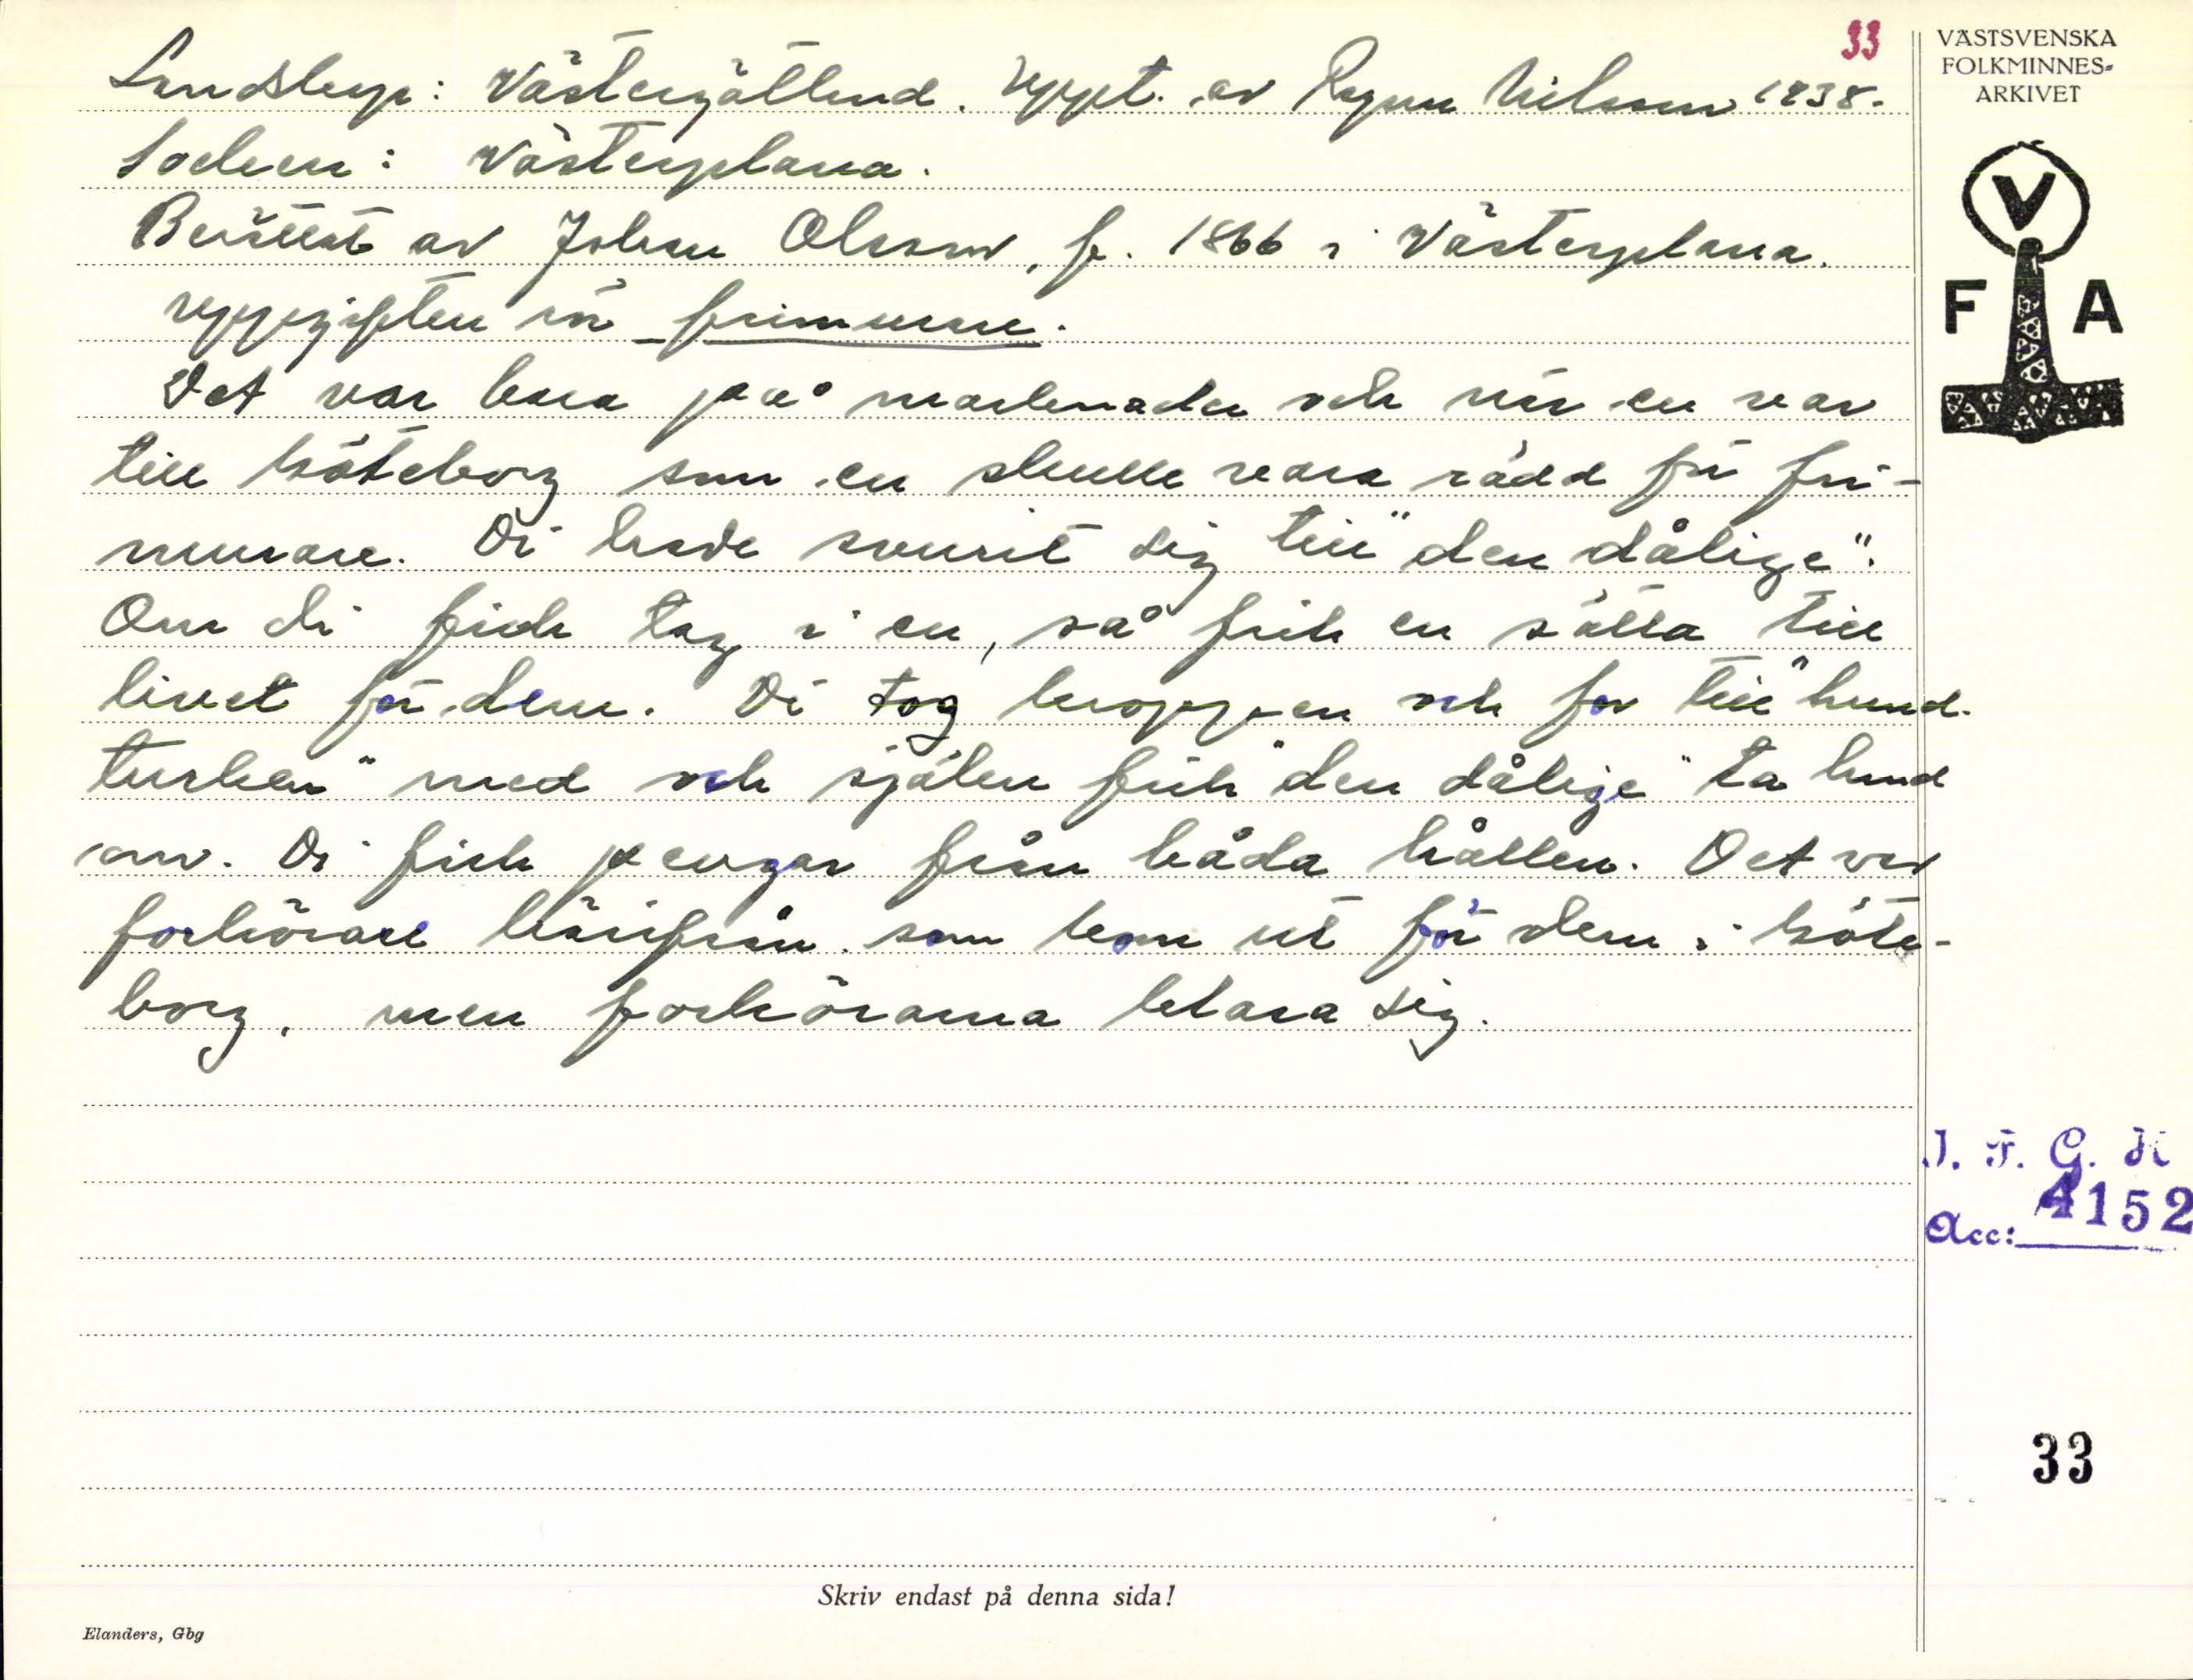 33
Landskap: Västergötland. Uppt. av Ragnar Nilsson 1938.
Socken: Västerplana.
Berättat av Johan Olsson, f. 1866 i Västerplana.
uppgiften rör frimurare.
Det var bara på marknader och när en var
till Göteborg som en skulle vara rädd för fri-
murare. Di hade svurit sig till "den dålige".
Om di fick tag i en, så fick en sätta till
livet för dem. Di tog kroppen och for till "hund-
turken" med och själen fick "den dålige" ta hand
om. Di fick pengar från båda hållen. Det var
forkörare härifrån som kom ut för dem i Göte-
borg, men forkörarna klara sig.
VÄSTSVENSKA
FOLKMINNES-
ARKIVET
V
F A
I. F. G. H
Acc: 4152
33
Skriv endast på denna sida!
Elanders, Gbg